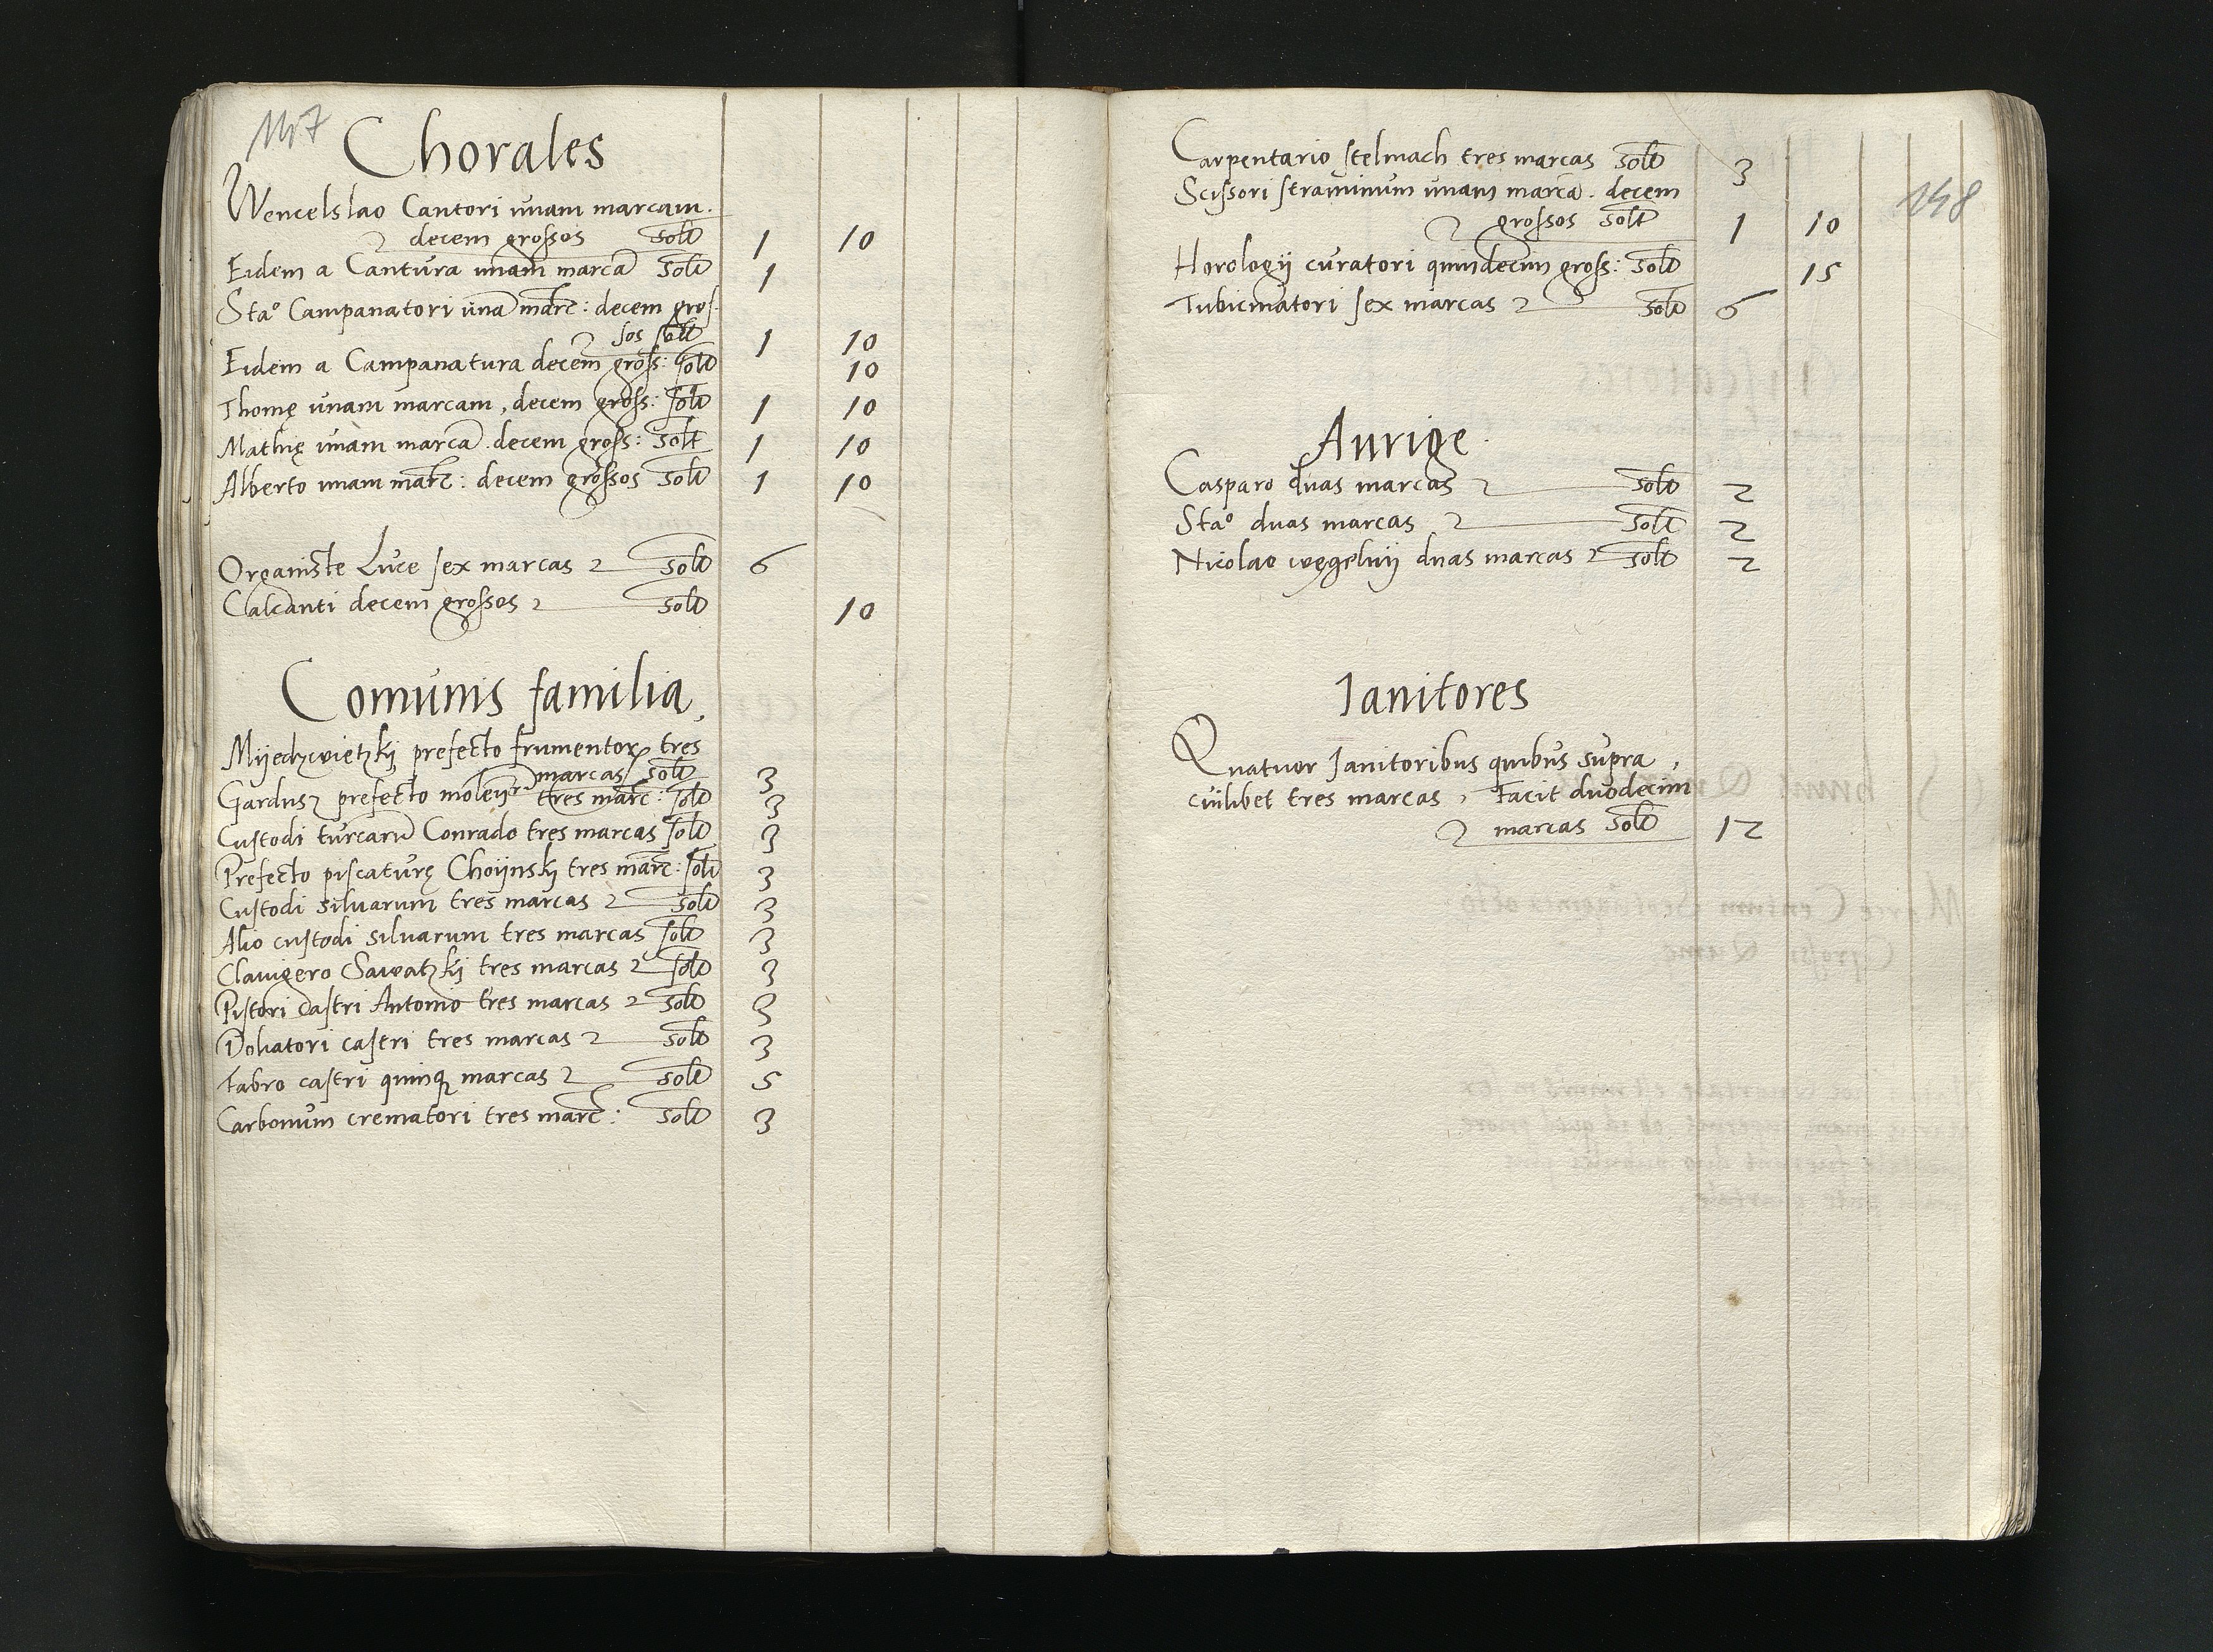 147
Chorales
Wencelslao Cantori unam marcam.
decem grossos solꝰ 1 10
Eidem a Cantura unam marcã solꝰ 1
Staº Campanatori unã marc: decem gros
sos solꝰ 1 10
Eidem a Campanatura decem gross: solꝰ 10
Thomę unam marcam, decem gross: solꝰ 1 10
Mathię unam marcã. decem gross: solt 1 10
Alberto unam marc: decem grossos solꝰ 1 10
Organiste Luce sex marcas solꝰ 6
Calcanti decem grossos solꝰ 10
Comunis familia,
Myedzwietzkij prefecto frumentorꝝ tres
marcas solꝰ 3
Gardusz prefecto tres marc: solꝰ 3
Custodi turcarũ Conrado tres marcas solꝰ 3
Prefecto piscaturę Choijnskij tres marc: solꝰ 3
Custodi silvarum tres marcas solꝰ 3
Alio custodi silvarum tres marcas solꝰ 3
Clavigero Sawatzkij tres marcas solꝰ 3
Pistori Castri Antonio tres marcas solꝰ 3
Doliatori castri tres marcas solꝰ 3
Fabro castri quinqꝫ marcas solꝰ 5
Carbonum crematori tres marc: solꝰ 3
148
Carpentario stelmach tres marcas solꝰ 3
Scissori straminum unam marcã. decem
grossos solt 1 10
Horologij curatori quindecim gross: solꝰ 15
Tubicinatori sex marcas solꝰ 6
Aurige.
Casparo duas marcas solꝰ 2
Staº duas marcas solꝰ 2
Nicolao duas marcas solꝰ 2
Ianitores
Quatuor Ianitoribus quibus supra,
cuilibet tres marcas, Facit duodecim
marcas solꝰ 12